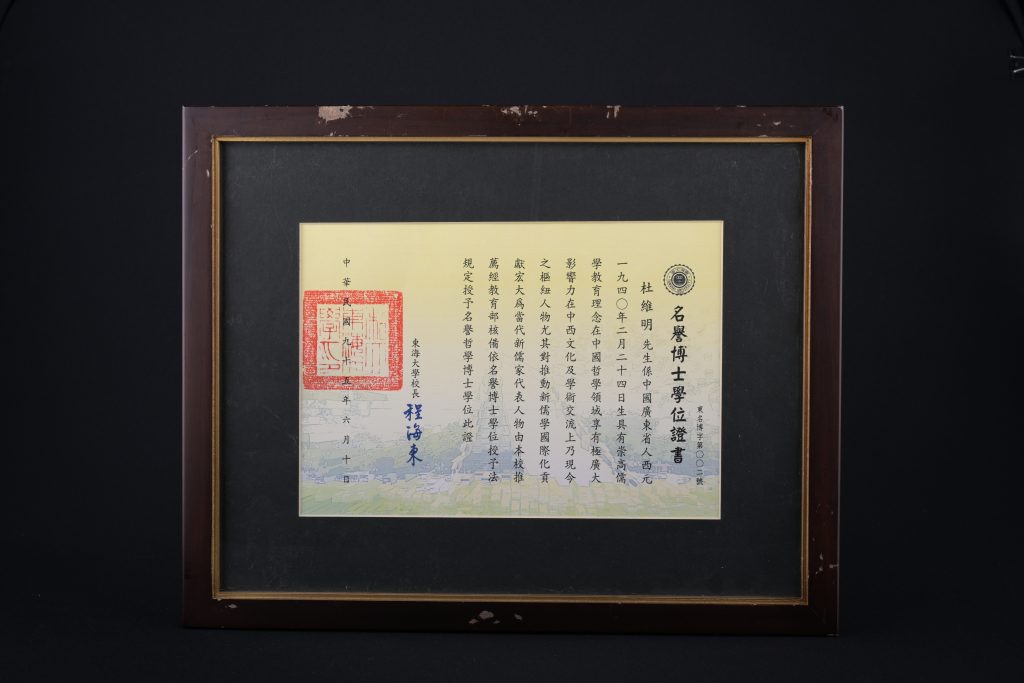 名譽博士學位證書
東名博字第〇〇二號
杜維明先生係中國廣東省人西元
一九四〇年二月二十四日生具有崇高儒
學教育理念在中國哲學領域享有極廣大
影響力在中西文化及學術交流上乃現今
之樞紐人物尤其對推動新儒學國際化貢
獻宏大為當代新儒家代表人物由本校推
薦經教育部核備依名譽博士學位授予法
規定授予名譽哲學博士學位此證
東海大學校長
程海東
中華民國九十五年六月十日